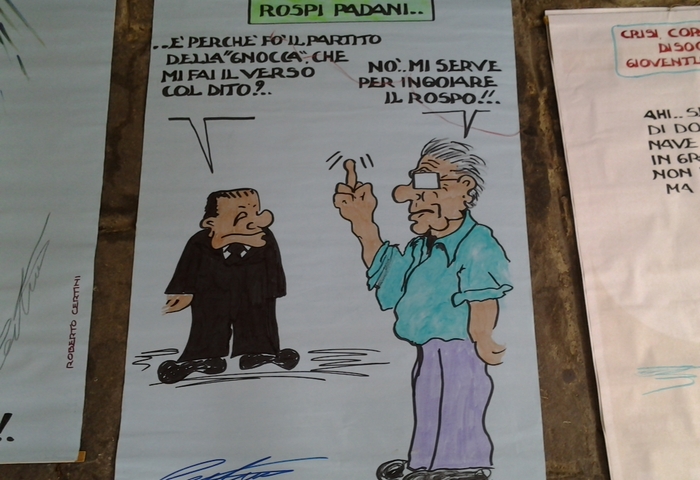 ROSPI PADANI..
..E' PERCHE' FO' IL PARTITO
DELLA "GNOCCA", CHE
MI FAI IL VERSO
COL DITO?..
NO'.. MI SERVE
PER INGOIARE
IL ROSPO!!..
ROBERTO CERTINI
!.
CRISI, COR
DISO
GIOVENTU
AHI.. S
DI DO
NAVE
IN GR
NON
MA